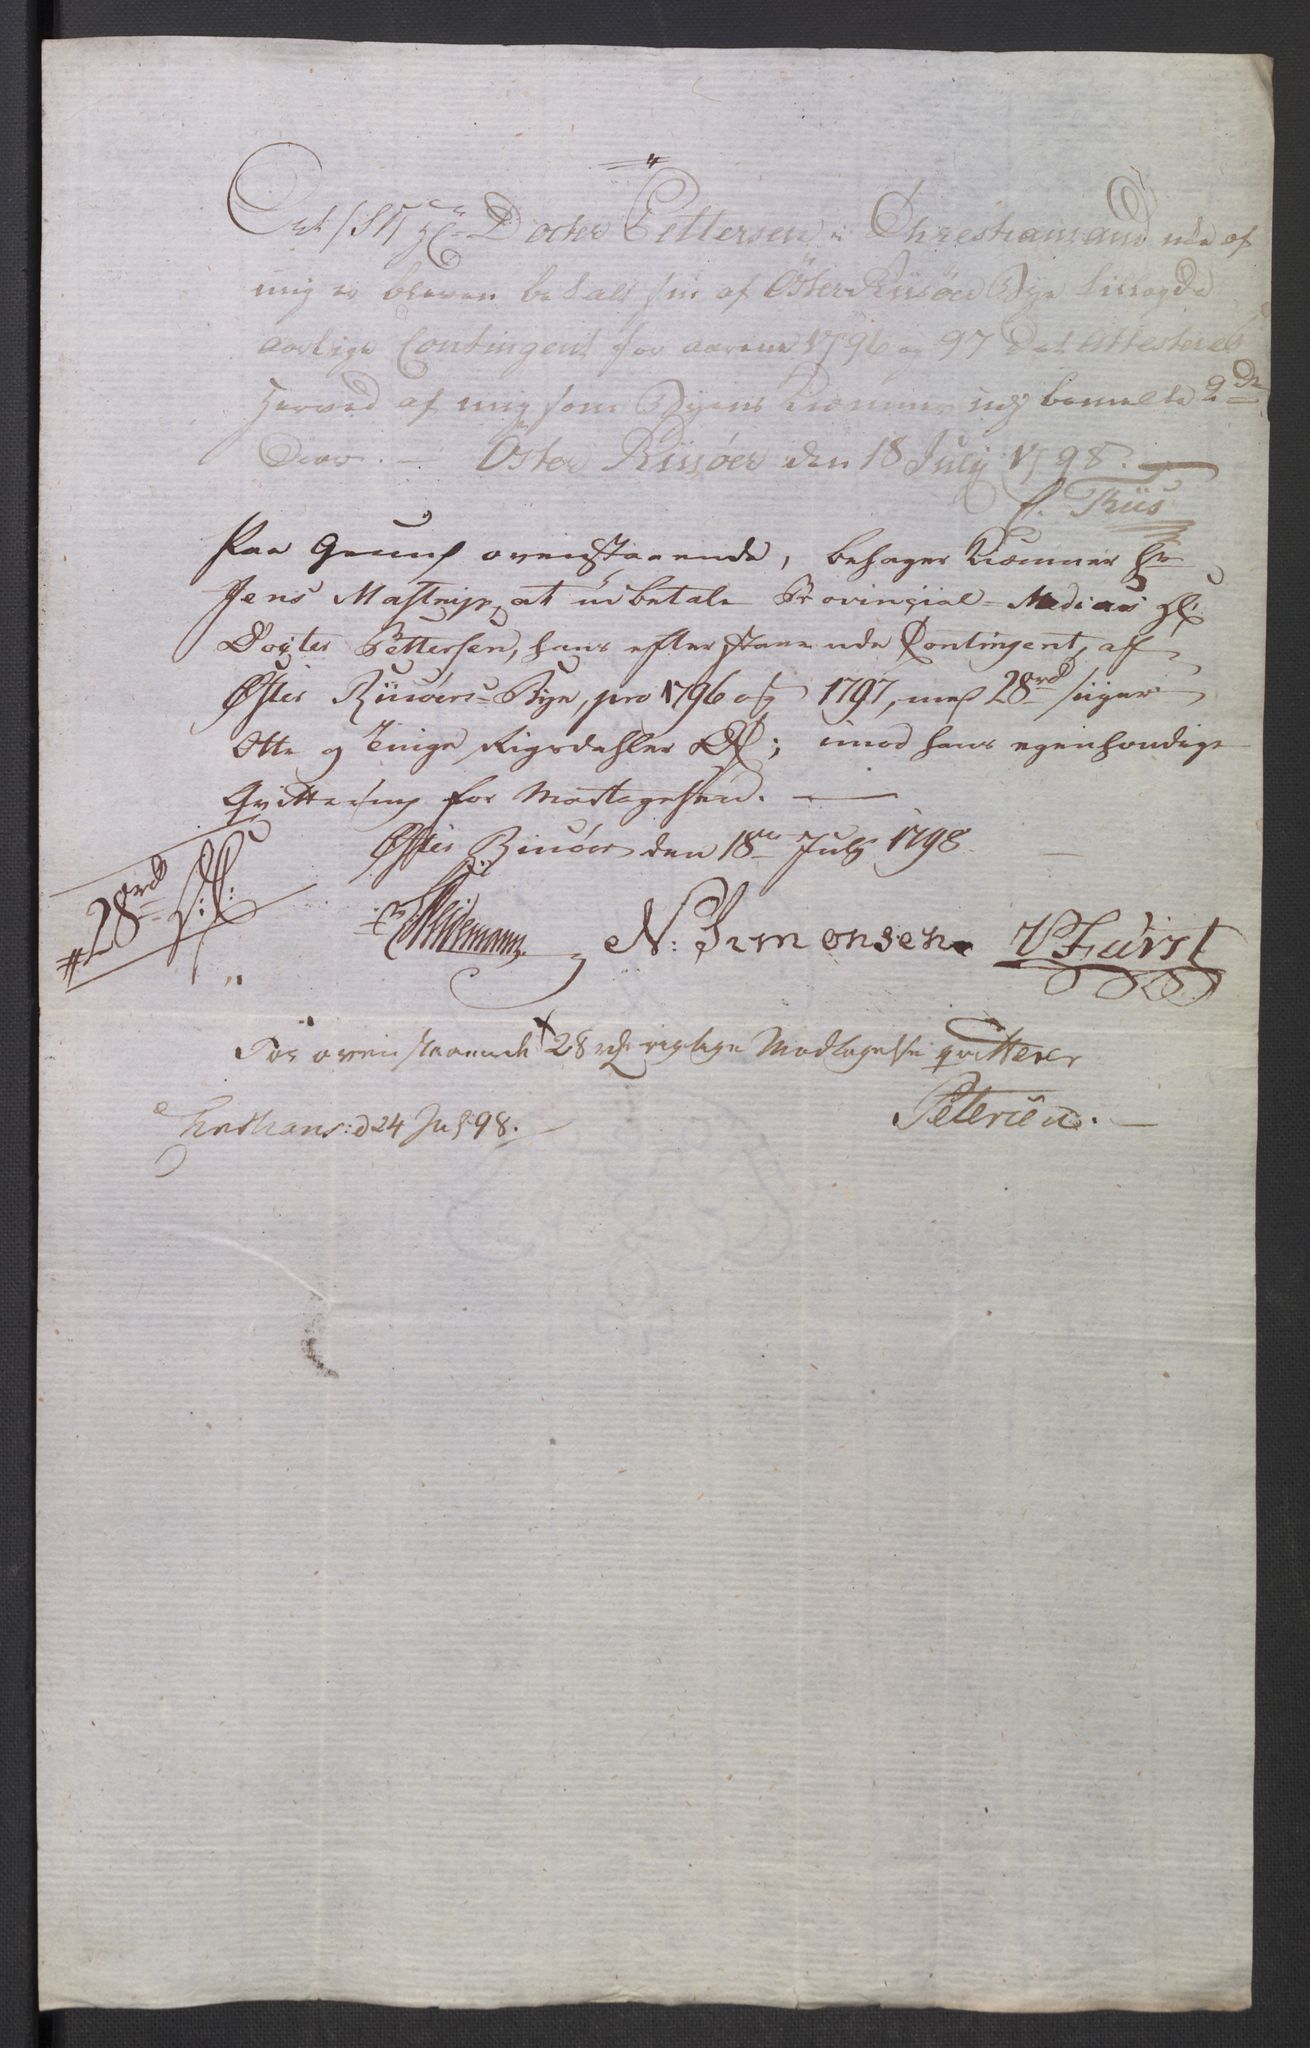 4
At S T Hr Docter Pettersen i Christiansand ude af
mig er bleven betalt sin af Öster Riisöer Bye tillagde
aarlige Contingent for aarene 1796 og 97 Det Attesteres
herved af mig som Byens Kiemner udj bemelte 2de
Aar. — Öster Riisøer den 18 July 1798.
C. Thiis
Paa Grund ovenstaaende, behager Kiemner Hr
Jens Mastrup, at udbetale Provinzial-Medicus Hr.
Docter Pettersen, hans efterstaaende Contingent, af
Øster Riisöers-Bye, pro 1796 og 1797, med 28rd siger
Otte og Tiuge Rigsdahler; imod hans egenhændige
Qvittering for Modtagelsen. —
Øster Riisöer den 18de July 1798.
# 28rd
Heidemann N: Simonsen V Fürst
For ovenstaaende 28 rd rigtige Modtagelse qvitterer
Christians: d 24 Jul 98. Petersen. —